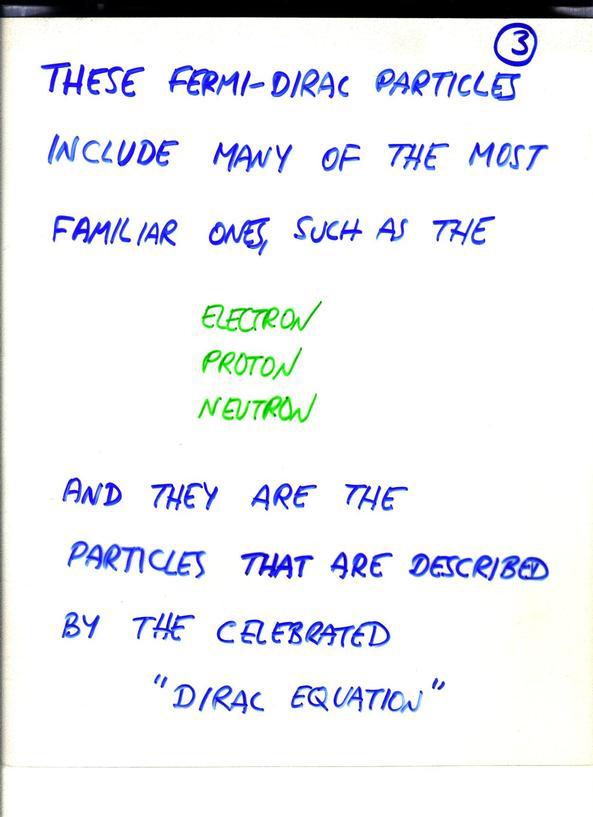 3
THESE FERMI-DIRAC PARTICLES
INCLUDE MANY OF THE MOST
FAMILIAR ONES, SUCH AS THE
ELECTRON
PROTON
NEUTRON
AND THEY ARE THE
PARTICLES THAT ARE DESCRIBED
BY THE CELEBRATED
"DIRAC EQUATION"